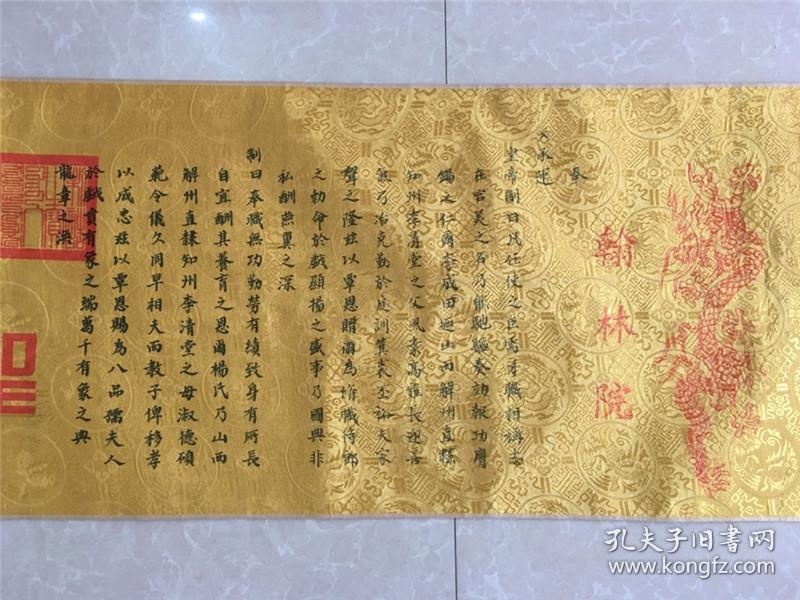 翰林院
奉
天承運
皇帝制曰凡任使之臣需才職詞稱志
在官美之名乃能馳驅奏効報功膺
錫之仁爾李成田迺山西解州直隸
知州李清堂之父風素高雅長迎善
氣乃冶克勤於庭訓箕裘丕訴大家
聲之隆玆以覃恩贈爾為脩職侍郎
之勅命於戲顯揚之盛事乃國典非
私酬燕翼之深
制曰奉職無功勤勞有績致身有所長
自宜酬其養育之恩爾楊氏乃山西
解州直隸知州李清堂之母淑德碩
範令儀久同早相夫而教子俾移孝
以成忠玆以覃恩賜為八品孺夫人
於戲賁有象之端萬千有象之典
龍章之渙
孔夫子旧书网
www.kongfz.com